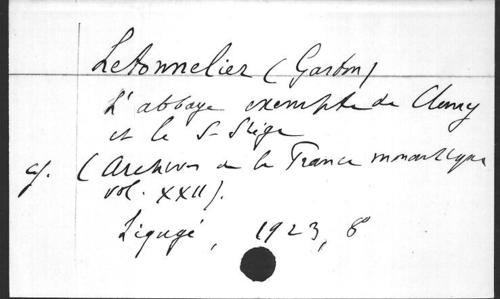 Letonnelier (Gaston)
L'abbaye exempte de Cluny
et le S-Siège
cf. (Archives de la France monastique
vol. XXII).
Ligugé, 1923, 8°